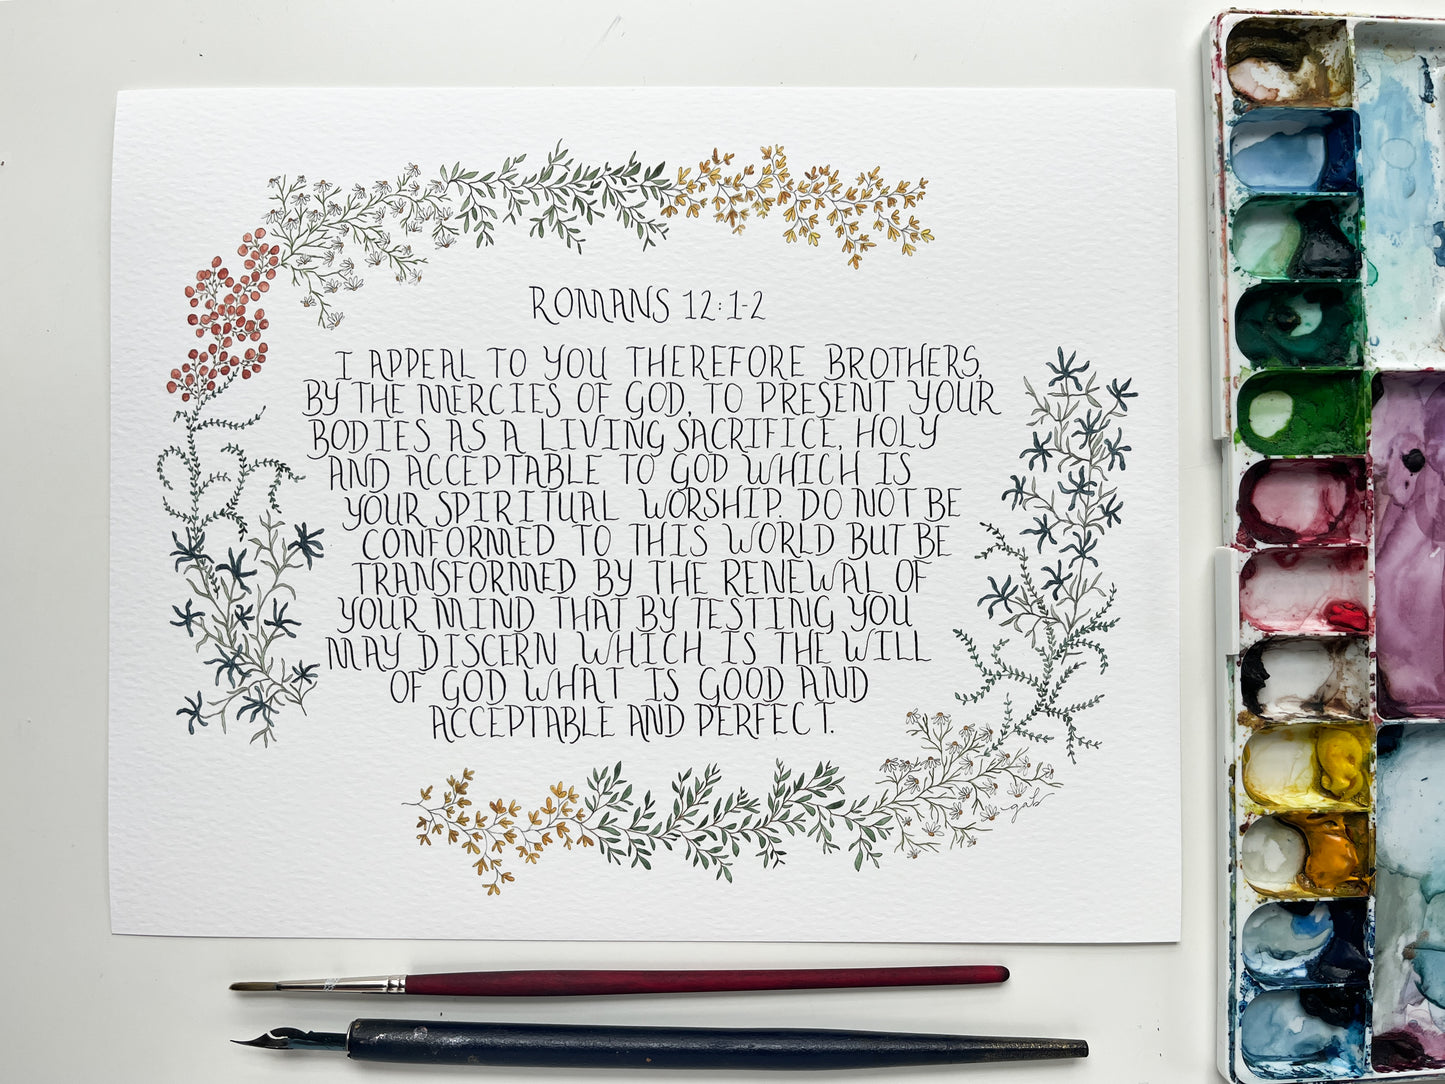 ROMANS 12:1-2
I APPEAL TO YOU THEREFORE BROTHERS,
BY THE MERCIES OF GOD, TO PRESENT YOUR
BODIES AS A LIVING SACRIFICE, HOLY
AND ACCEPTABLE TO GOD WHICH IS
YOUR SPIRITUAL WORSHIP. DO NOT BE
CONFORMED TO THIS WORLD BUT BE
TRANSFORMED BY THE RENEWAL OF
YOUR MIND THAT BY TESTING YOU
MAY DISCERN WHICH IS THE WILL
OF GOD WHAT IS GOOD AND
ACCEPTABLE AND PERFECT.
gab